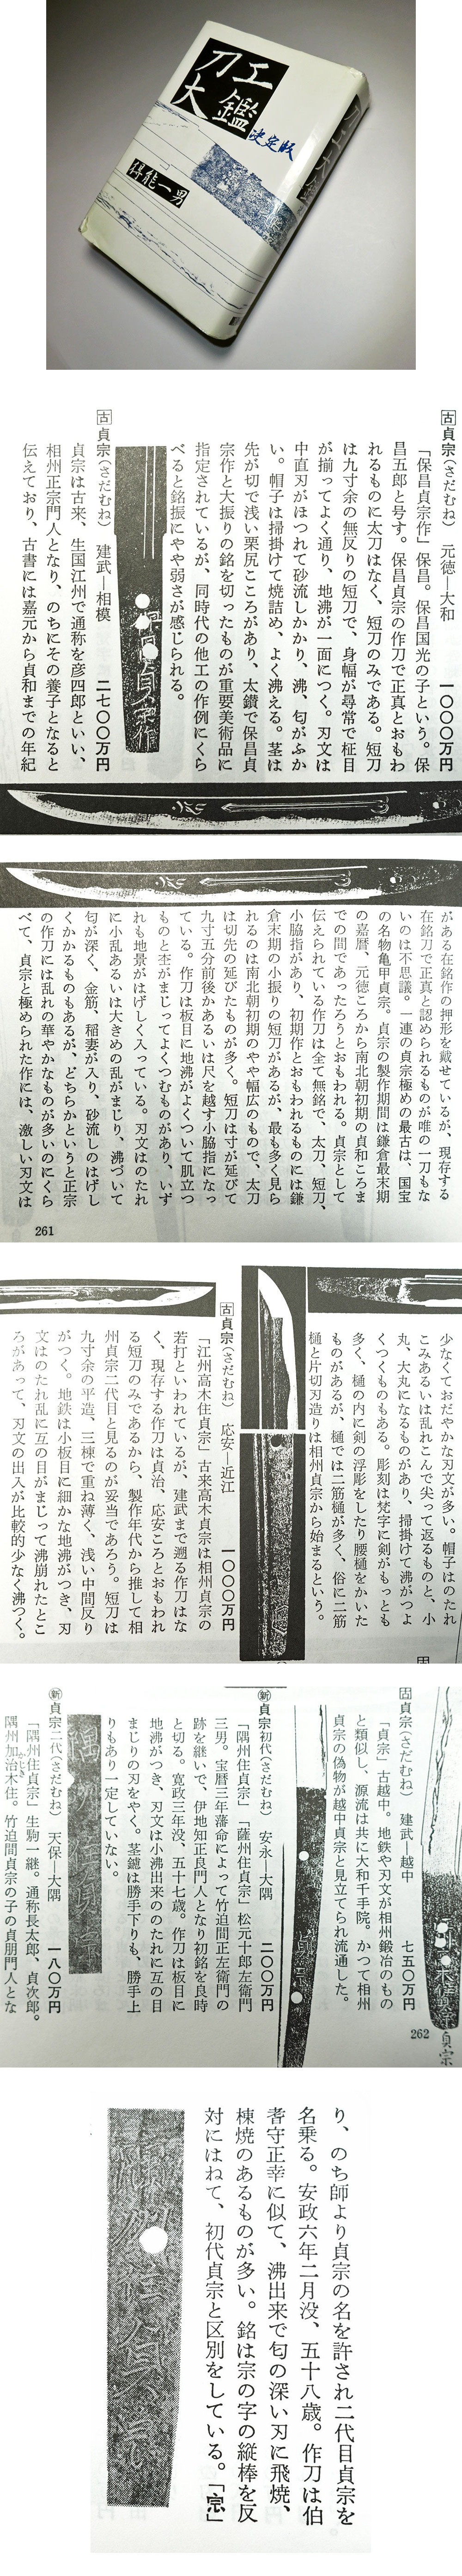 刀工
大鑑
決定版
得能一男
刀工大鑑
古 貞宗（さだむね） 元徳―大和 一〇〇〇万円
「保昌貞宗作」保昌。保昌国光の子という。保
昌五郎と号す。保昌貞宗の作刀で正真とおもわ
れるものに太刀はなく、短刀のみである。短刀
は九寸余の無反りの短刀で、身幅が尋常で柾目
が揃ってよく通り、地沸が一面につく。刃文は
中直刃がほつれて砂流しかかり、沸、匂がふか
い。帽子は掃掛けて焼詰め、よく沸える。茎は
先が切で浅い栗尻こころがあり、太鑽で保昌貞
宗作と大振りの銘を切ったものが重要美術品に
指定されているが、同時代の他工の作例にくら
べると銘振にやや弱さが感じられる。
古 貞宗（さだむね） 建武―相模 二七〇〇万円
貞宗は古来、生国江州で通称を彦四郎といい、
相州正宗門人となり、のちにその養子となると
伝えており、古書には嘉元から貞和までの年紀
がある在銘作の押形を戴せているが、現存する
在銘刀で正真と認められるものが唯の一刀もな
いのは不思議。一連の貞宗極めの最古は、国宝
の名物亀甲貞宗。貞宗の製作期間は鎌倉最末期
の嘉暦、元徳ころから南北朝初期の貞和ころま
での間であったろうとおもわれる。貞宗として
伝えられている作刀は全て無銘で、太刀、短刀、
小脇指があり、初期作とおもわれるものには鎌
倉末期の小振りの短刀があるが、最も多く見ら
れるのは南北朝初期のやや幅広のもので、太刀
は切先の延びたものが多く。短刀は寸が延びて
九寸五分前後かあるいは尺を越す小脇指になっ
ている。作刀は板目に地沸がよくついて肌立つ
ものと杢がまじってよくつむものがあり、いず
れも地景がはげしく入っている。刃文はのたれ
に小乱あるいは大きめの乱がまじり、沸づいて
匂が深く、金筋、稲妻が入り、砂流しのはげし
くかかるものもあるが、どちらかというと正宗
の作刀には乱れの華やかなものが多いのにくら
べて、貞宗と極められた作には、激しい刃文は
261
少なくておだやかな刃文が多い。帽子はのたれ
こみあるいは乱れこんで尖って返るものと、小
丸、大丸になるものがあり、掃掛けて沸がつよ
くつくものもある。彫刻は梵字に剣がもっとも
多く、樋の内に剣の浮彫をしたり腰樋をかいた
ものがあるが、樋では二筋樋が多く、俗に二筋
樋と片切刃造りは相州貞宗から始まるという。
古 貞宗（さだむね） 応安―近江 一〇〇〇万円
「江州高木住貞宗」古来高木貞宗は相州貞宗の
若打といわれているが、建武まで遡る作刀はな
く、現存する作刀は貞治、応安ころとおもわれ
る短刀のみであるから、製作年代から推して相
州貞宗二代目と見るのが妥当であろう。短刀は
九寸余の平造、三棟で重ね薄く、浅い中間反り
がつく。地鉄は小板目に細かな地沸がつき、刃
文はのたれ乱に互の目がまじって沸崩れたとこ
ろがあって、刃文の出入が比較的少なく沸つく。
古 貞宗（さだむね） 建武―越中 七五〇万円
「貞宗」古越中。地鉄や刃文が相州鍛冶のもの
と類似し、源流は共に大和千手院。かつて相州
貞宗の偽物が越中貞宗と見立てられ流通した。
貞宗
262
新 貞宗初代（さだむね） 安永―大隅 二〇〇万円
「隅州住貞宗」「薩州住貞宗」松元十郎左衛門
三男。宝暦三年藩命によって竹迫間正左衛門の
跡を継いで、伊地知正良門人となり初銘を良時
と切る。寛政三年没、五十七歳。作刀は板目に
地沸がつき、刃文は小沸出来ののたれに互の目
まじりの刃をやく。茎鑢は勝手下りも、勝手上
りもあり一定していない。
新 貞宗二代（さだむね） 天保―大隅 一八〇万円
「隅州住貞宗」生駒一継。通称長太郎、貞次郎。
隅州加治木住。竹迫間貞宗の子の貞朋門人とな
り、のち師より貞宗の名を許され二代目貞宗を
名乗る。安政六年二月没、五十八歳。作刀は伯
耆守正幸に似て、沸出来で匂の深い刃に飛焼、
棟焼のあるものが多い。銘は宗の字の縦棒を反
対にはねて、初代貞宗と区別をしている。「宗」